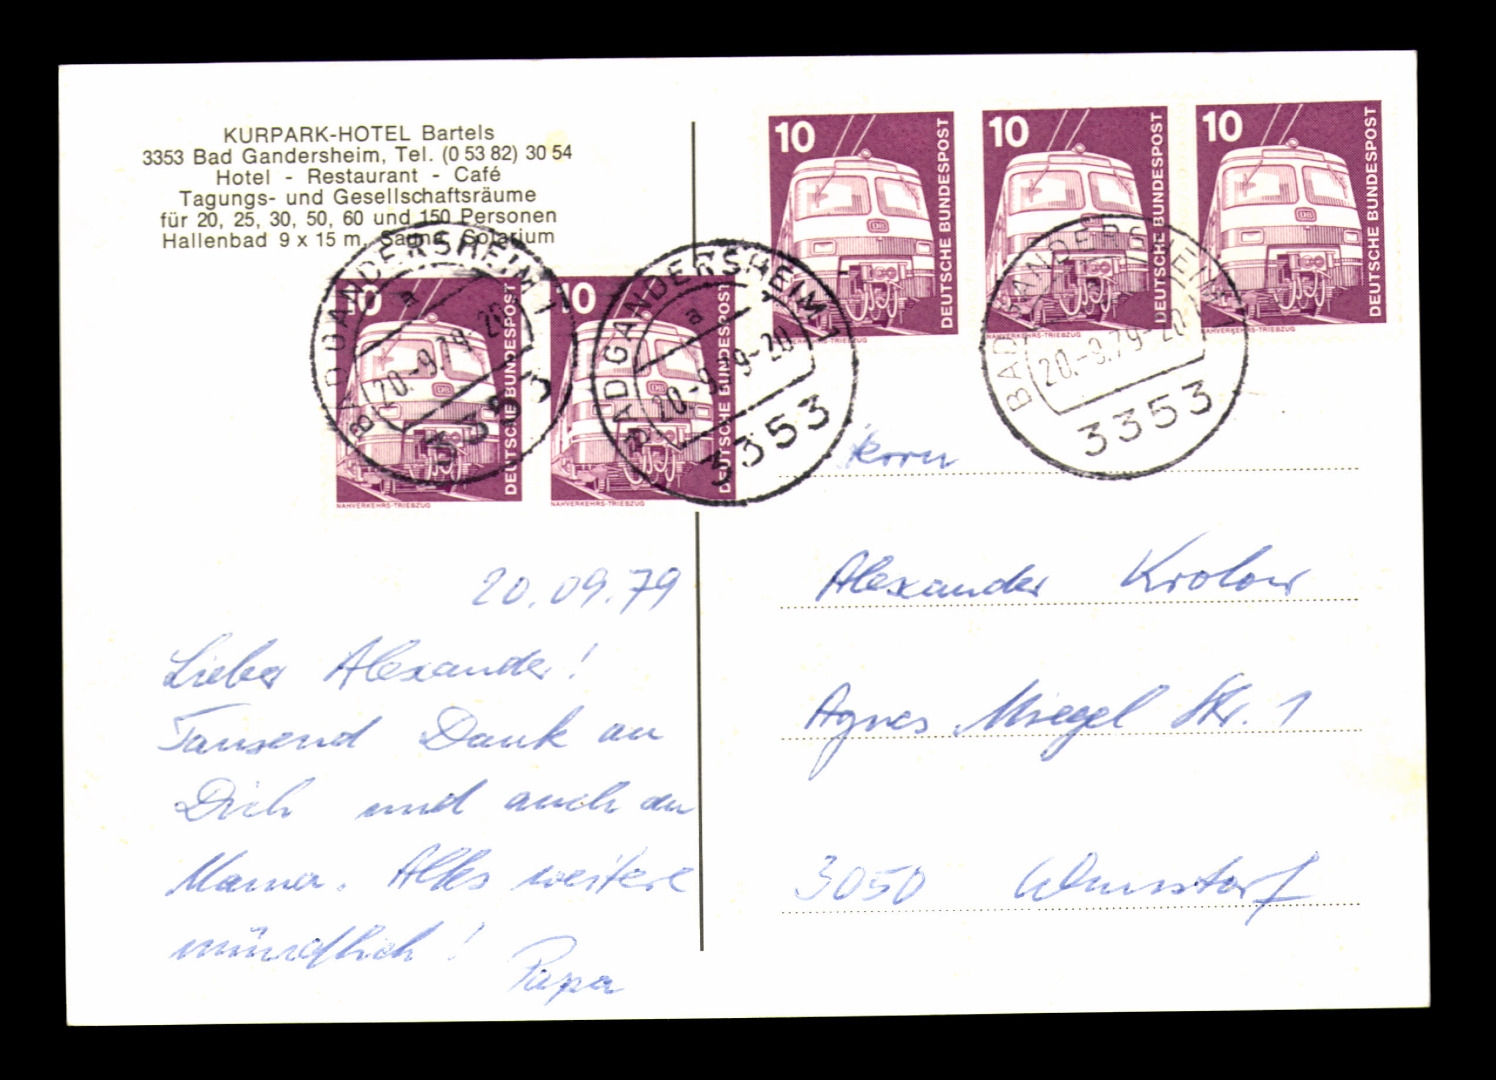 KURPARK-HOTEL Bartels
3353 Bad Gandersheim, Tel. (0 53 82) 30 54
Hotel - Restaurant - Café
Tagungs- und Gesellschaftsräume
für 20, 25, 30, 50, 60 und 150 Personen
Hallenbad 9 x 15 m, Sauna, Solarium
10
DEUTSCHE BUNDESPOST
NAHVERKEHRS-TRIEBZUG
10
DEUTSCHE BUNDESPOST
NAHVERKEHRS-TRIEBZUG
10
DEUTSCHE BUNDESPOST
NAHVERKEHRS-TRIEBZUG
10
DEUTSCHE BUNDESPOST
NAHVERKEHRS-TRIEBZUG
10
DEUTSCHE BUNDESPOST
NAHVERKEHRS-TRIEBZUG
BAD GANDERSHEIM 1
a
20.-9.79-20
3353
BAD GANDERSHEIM 1
a
20.-9.79-20
3353
BAD GANDERSHEIM 1
20.-9.79-20
3353
20.09.79
Lieber Alexander!
Tausend Dank an
Dich und auch an
Mama. Alles weitere
mündlich!
Papa
Herrn
Alexander Krolow
Agnes Miegel Str. 1
3050 Wunstorf